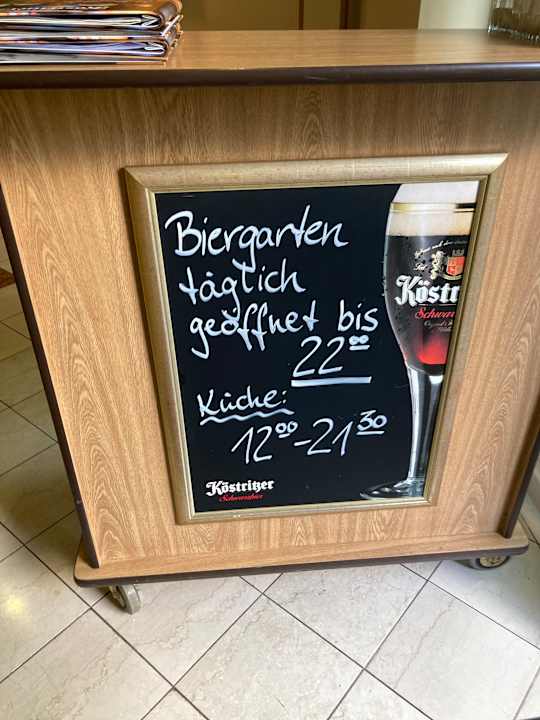 Biergarten
täglich
geöffnet bis
22⁰⁰
Küche:
12⁰⁰-21³⁰
Köstritzer
Schwarzbier
Köstri
Schwar